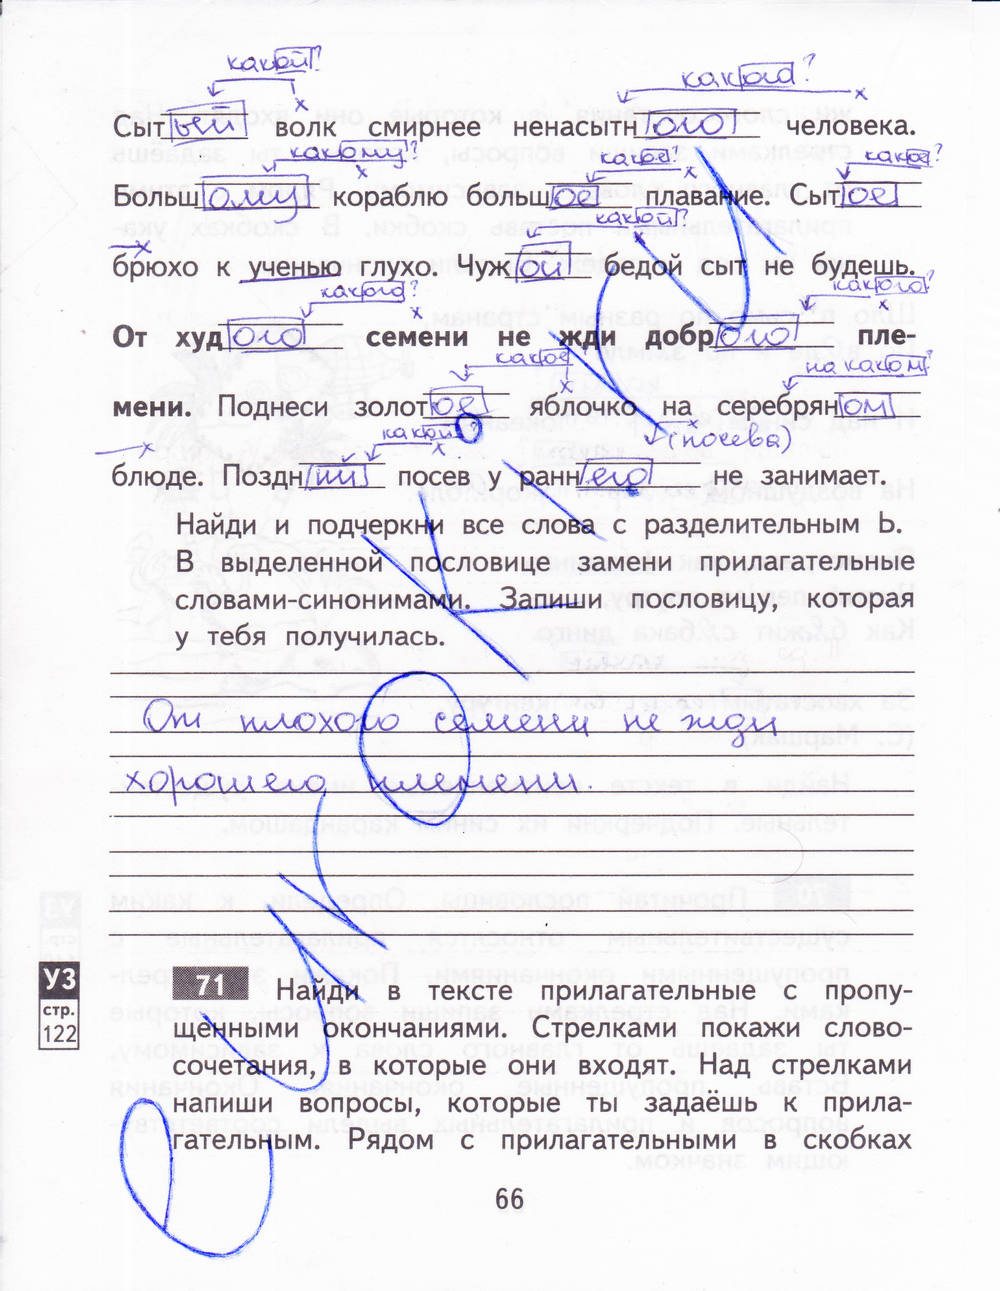 какой? какого?
Сытый волк смирнее ненасытного человека.
какому? какое? какое?
Большому кораблю большое плавание. Сытое
какой?
брюхо к ученью глухо. Чужой бедой сыт не будешь.
какого? какого?
От худого семени не жди доброго пле-
какое на каком?
мени. Поднеси золотое яблочко на серебряном
какой? (посева)
блюде. Поздний посев у раннего не занимает.
Найди и подчеркни все слова с разделительным Ь.
В выделенной пословице замени прилагательные
словами-синонимами. Запиши пословицу, которая
у тебя получилась.
От плохого семени не жди
хорошего племени.
УЗ
стр.
122
71 Найди в тексте прилагательные с пропу-
щенными окончаниями. Стрелками покажи слово-
сочетания, в которые они входят. Над стрелками
напиши вопросы, которые ты задаёшь к прила-
гательным. Рядом с прилагательными в скобках
66